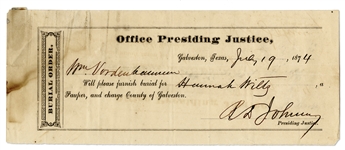 Office Presiding Justice,
BURIAL ORDER.
Galveston, Texas, July 19, 1874
Wm Vordenbaumen
Will please furnish burial for Hannah Wilty
Pauper, and charge County of Galveston.
Presiding Justice